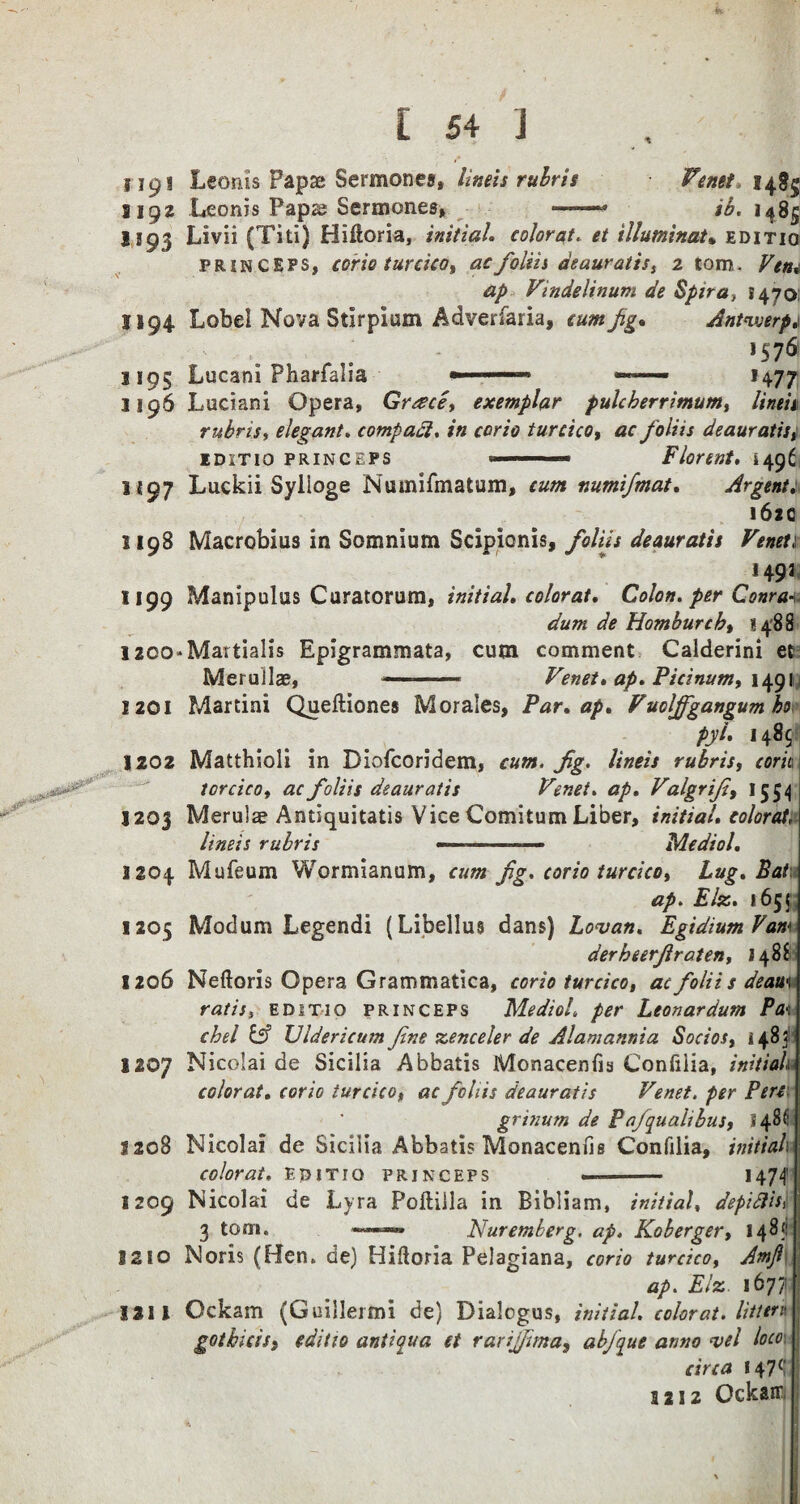 [ 54 ]
1191 Leonis Papæ Sermones, lineis rubris Venet. 1485
1192 Leonis Papæ Sermones, —— ib. 1485
1193 Livii (Titi) Hiſtoria, initial. colorat. et illuminat. EDITIO
PRINCEPS, corio turcico, ac foliis deauratis, 2 tom. Ven.
ap Vindelinum de Spira, 1470
1194 Lobel Nova Stirpium Adverſaria, cum fig. Antwerp.
1576
1195 Lucani Pharſalia —— —— 1477
1196 Luciani Opera, Græcé, exemplar pulcherrimum, lineis
rubris, elegant. compact. in corio turcico, ac foliis deauratis,
EDITIO PRINCEPS —— Florent. 1496
1197 Luckii Sylloge Numiſmatum, cum numiſmat. Argent.
1620
1198 Macrobius in Somnium Scipionis, foliis deauratis Venet.
1492
1199 Manipulus Curatorum, initial. colorat. Colon. per Conra-
dum de Homburch, 1488
1200 Martialis Epigrammata, cum comment Calderini et
Merullæ, —— Venet. ap. Picinum, 1491
1201 Martini Queſtiones Morales, Par. ap. Vuolffgangum ho
pyl. 148
1202 Matthioli in Dioſcoridem, cum. fig. lineis rubris, corio
torcico, ac foliis deauratis Venet. ap. Valgriſi, 1554
1203 Merulæ Antiquitatis Vice Comitum Liber, initial. colorat.
lineis rubris —— Mediol.
1204 Muſeum Wormianum, cum fig. corio turcico, Lug. Bat
ap. Elz. 1655
1205 Modum Legendi (Libellus dans) Lovan. Egidium Van
derheerſtraten, 148
1206 Neſtoris Opera Grammatica, corio turcico, ac folii s deau
ratis, EDITIO PRINCEPS Mediol. per Leonardum Pa
chel & Uldericum ſine zenceler de Alamannia Socios, 1483
1207 Nicolai de Sicilia Abbatis Monacenſis Conſilia, initial.
colorat. corio turcico, ac foliis deauratis Venet. per Pere
grinum de Paſqualibus, 148
1208 Nicolai de Sicilia Abbatis Monacenſis Conſilia, initial
colorat. EDITIO PRINCEPS —— 1474
1209 Nicolai de Lyra Poſtilla in Bibliam, initial, depictis,
3 tom. —— Nuremberg. ap. Koberger, 148
1210 Noris (Hen. de) Hiſtoria Pelagiana, corio turcico, Amſt
ap. Elz 1677
1211 Ockam (Guillermi de) Dialogus, initial. colorat. litter
gothicis, editio antiqua et rariſſima, abſque anno vel loco
circa 147
1212 Ockam